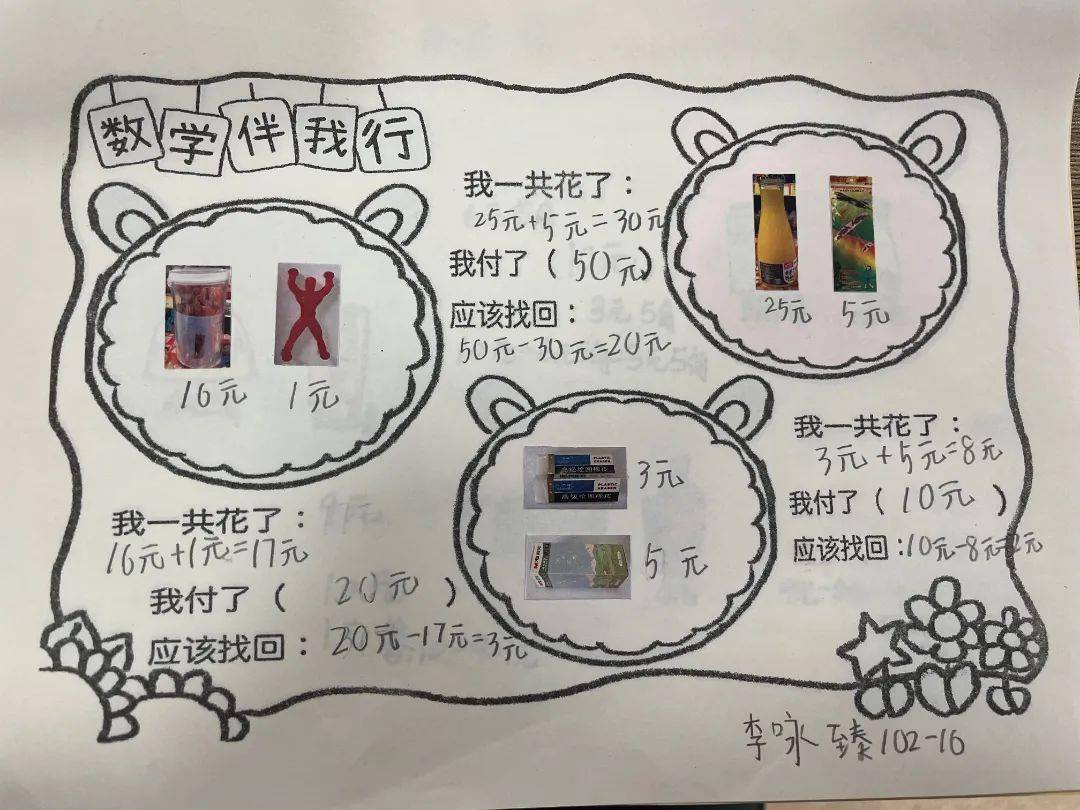 数学伴我行
16元 1元
我一共花了：
16元+1元=17元
我付了（20元）
应该找回：20元-17元=3元
我一共花了：
25元+5元=30元
我付了（50元）
应该找回：
50元-30元=20元
25元 5元
PLASTIC ERASER
PLASTIC ERASER
3元
5元
我一共花了：
3元+5元=8元
我付了（10元）
应该找回：10元-8元=2元
李咏臻102-16